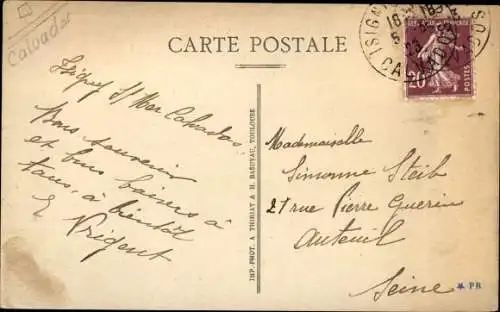 Calvados
CARTE POSTALE
ISIGNY
CALVADOS
20
POSTES
Isigny s/ Mer Calvados
Bons souvenirs
et bons baisers à
tous, à bientôt
Prigent
IMP.-PHOT. A. THIRIAT & H. BASUYAU, TOULOUSE
Mademoiselle
Simonne Steib
21 rue Pierre Guerin
Auteuil
Seine
* PB